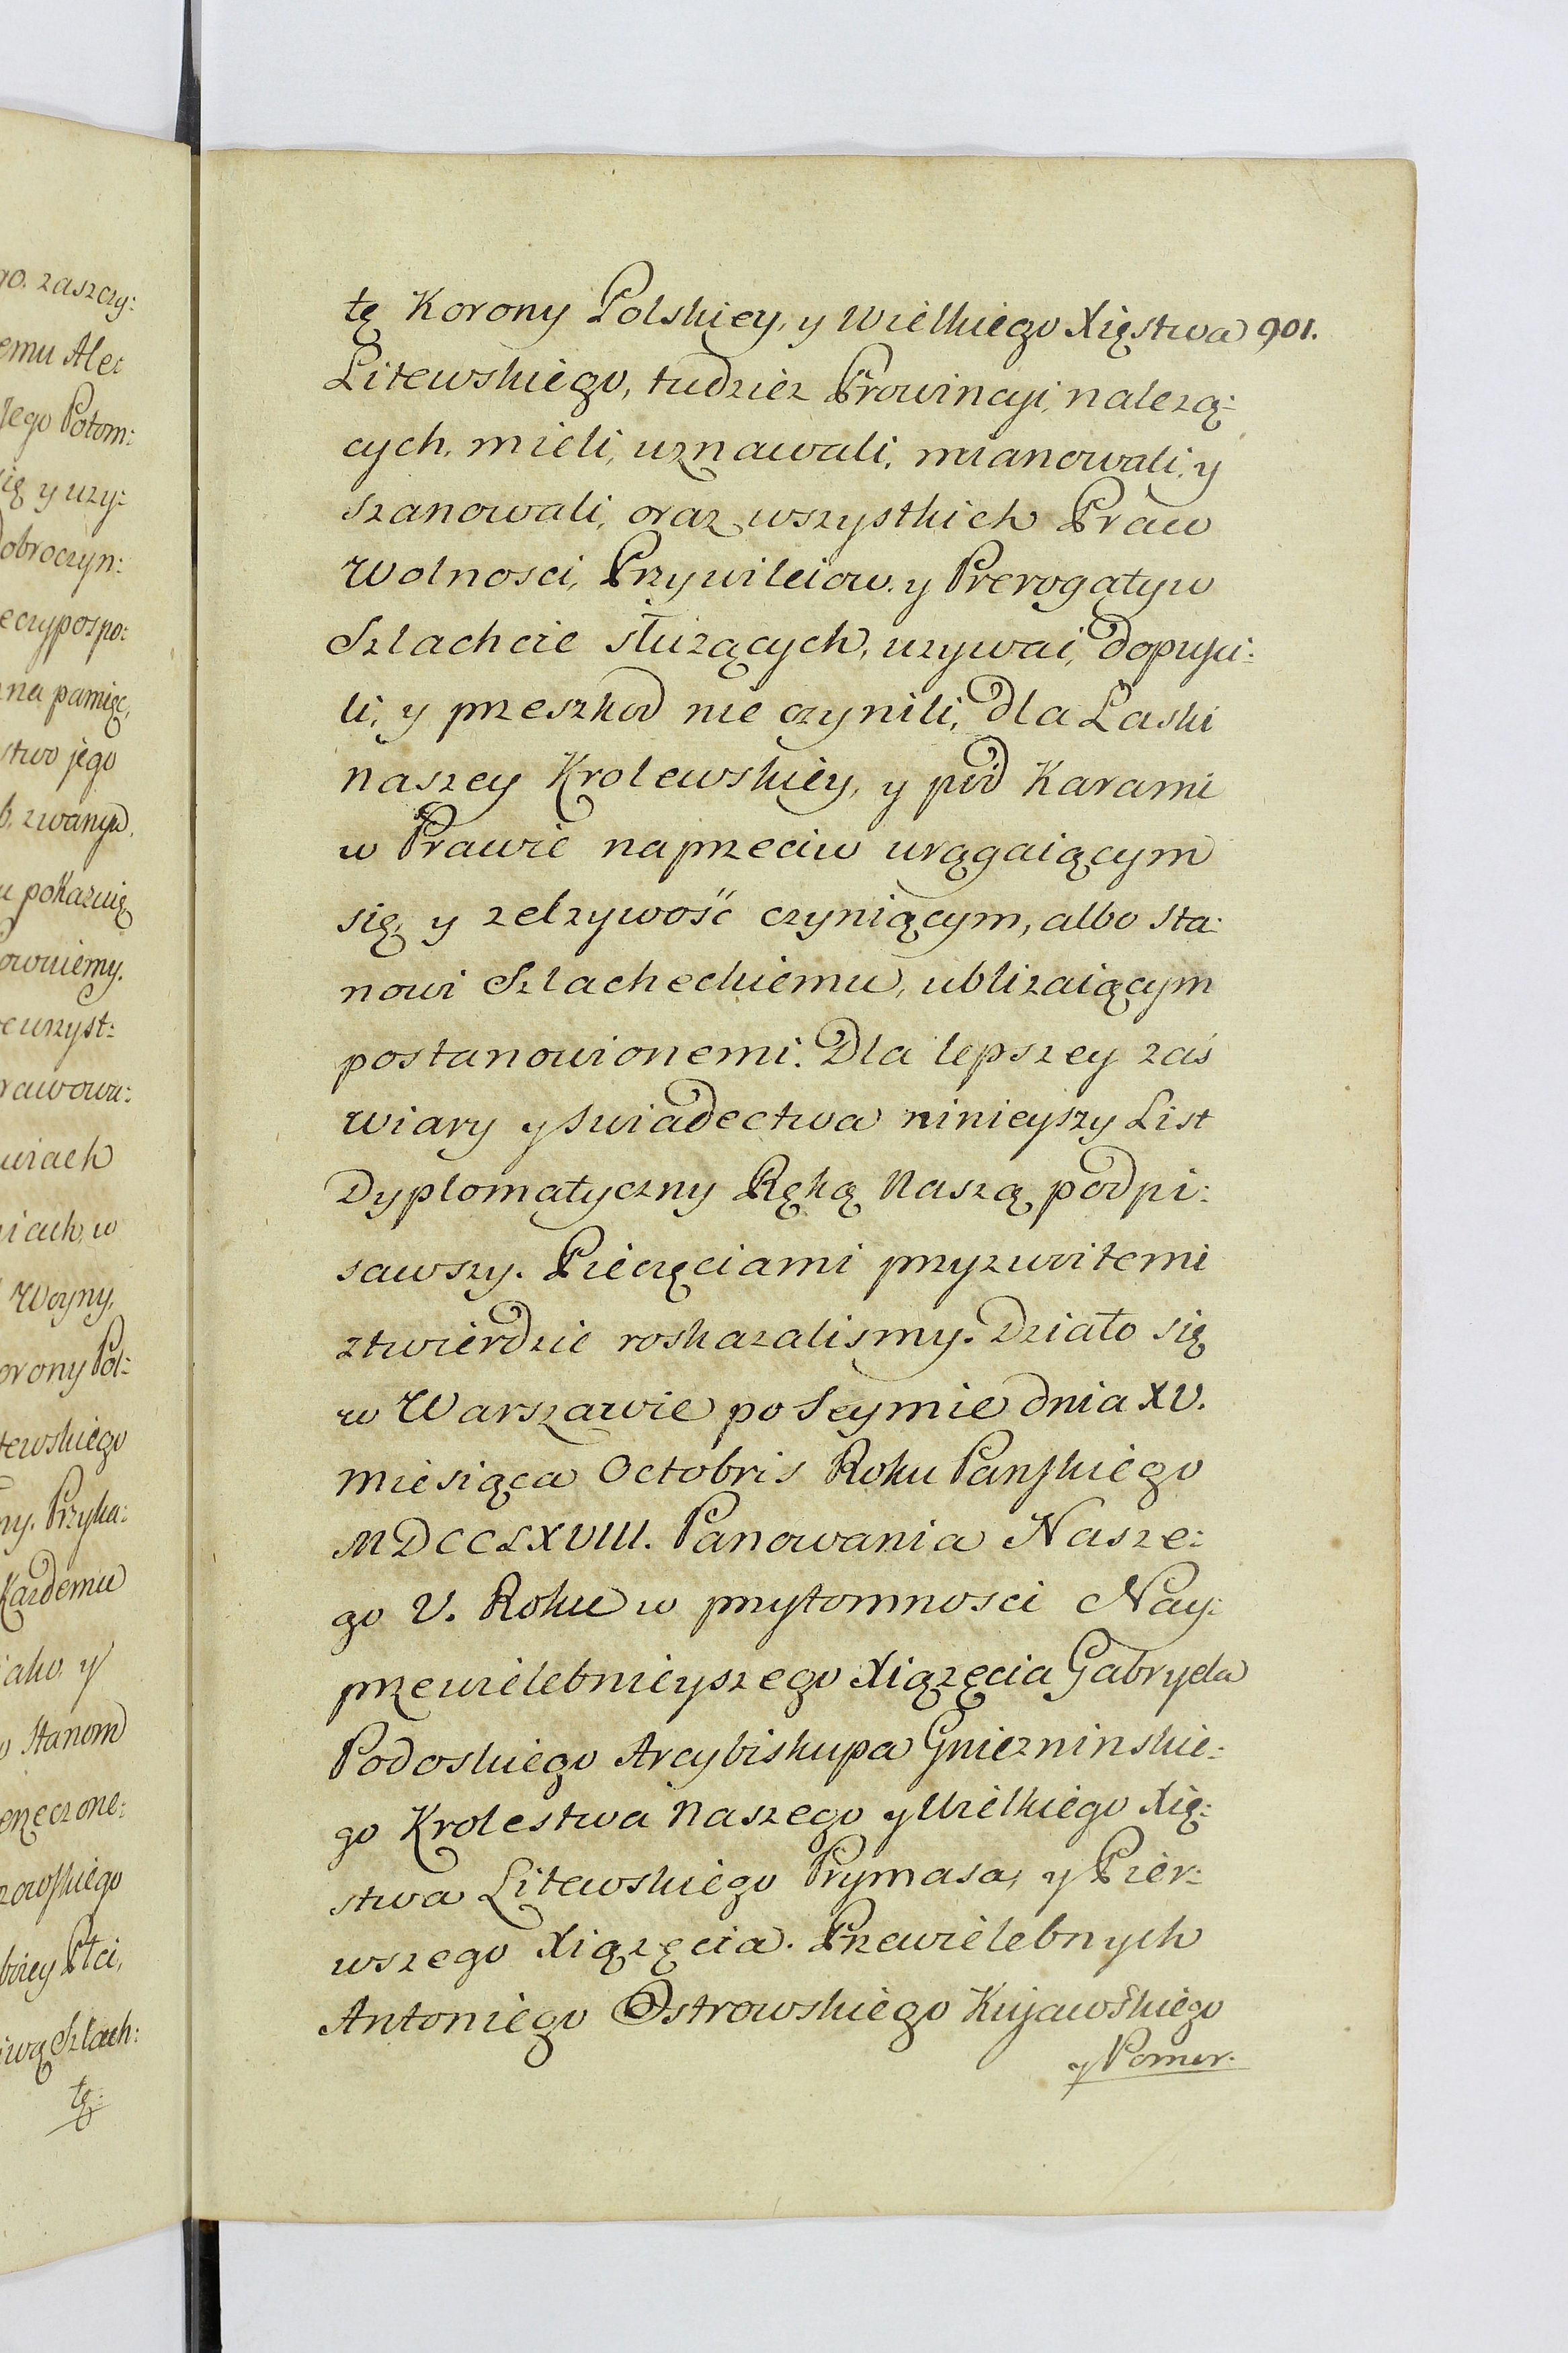 go. zaszczy:
emu Ale:
Jego Potom:
ię y uzy:
obroczyn:
eczypospo:
na pamięc,
stwo jego
b. zwanym.
u pokazuię
owuiemy.
e wszyst:
rawowa:
wiach
niach, w
Woyny,
orony Pol:
tewskiego
ny. Przyka:
Kazdemu
iako y
o Stanom
enęczone:
zowskiego
boiey Płci,
iwą Szlach:
tę:
tę Korony Polskiey, y Wielkiego Xięstwa 901.
Litewskiego, tudziez Prowincyi, nalezą:
cych, mieli, uznawali, mianowali, y
szanowali, oraz wszystkich Praw
Wolnosci, Przywileiow, y Prerogątyw
Szlachcie słuzących, uzywai, dopuści:
li, y przeszkod nie czynili, dla Laski
naszey Krolewskiey, y pod Karami
w Prawie naprzeciw urągaiącym
się, y zelzywość czyniącym, albo sta:
nowi Szlacheckiemu, ublizaiącym
postanowionemi. Dla lepszey zaś
wiary y swiadectwa ninieyszy List
Dyplomątyczny Ręką Naszą podpi:
sawszy. Pieczęciami przyzwitemi
ztwierdzic roskazalismy. Działo się
w Warszawie po Seymie dnia XV.
miesiąca Octobris Roku Panskiego
MDCCLXVIII. Panowania Nasze:
go V. Roku w przytomnosci Nay:
przewielebnieyszego Xiązęcia Gabryela
Podoskiego Arcybiskupa Gniezninskie:
go Krolestwa Naszego y Wielkiego Xię:
stwa Litewskiego Prymasa, y Pier:
wszego Xiązęcia. Przewielebnych
Antoniego Ostrowskiego Kujawskiego
y Pomer.